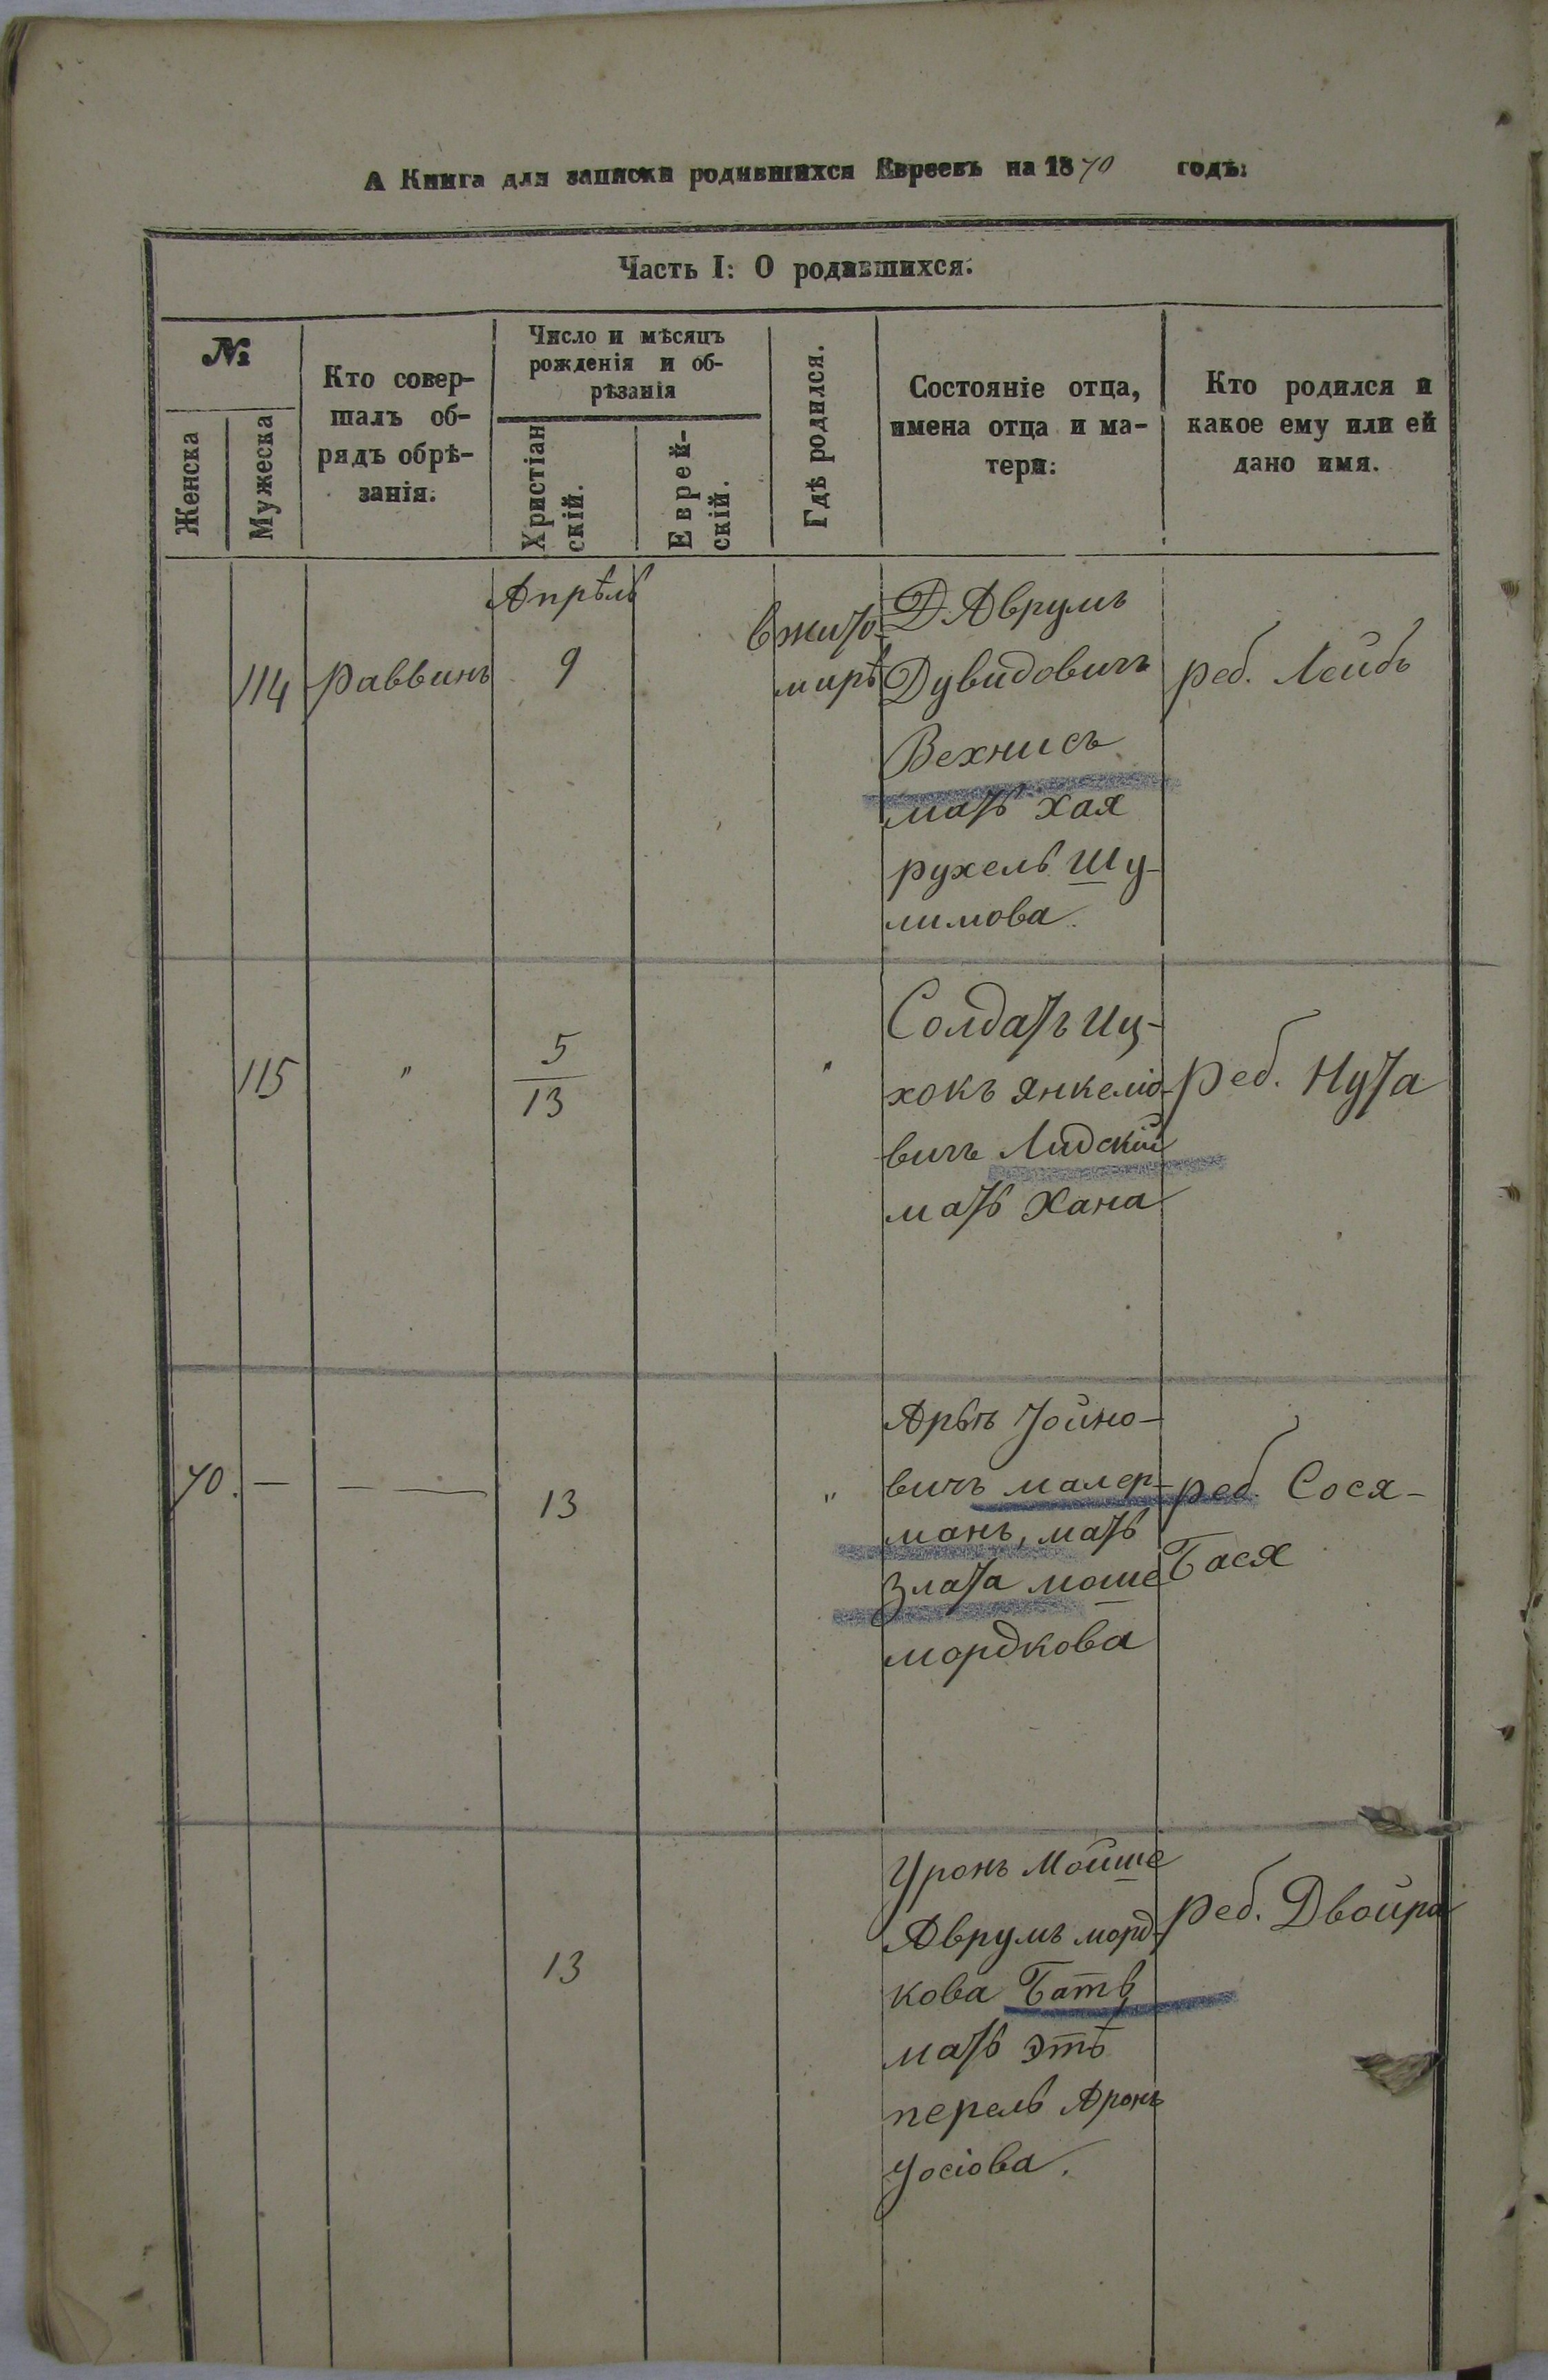 А Книга для записки родившихся Евреевъ на 1870 годъ:
Часть I: О родившихся.
№
Женска
Мужеска
Кто совер-
шалъ об-
рядъ обрѣ-
занія.
Число и мѣсяцъ
рожденія и об-
рѣзанія
Христіан
скій.
Еврей-
скій.
Гдѣ родился.
Состояніе отца,
имена отца и ма-
тери:
Кто родился и
какое ему или ей
дано имя.
114
Раввинъ
Апрѣль
9
в жито-
мирѣ
Аврумъ
Дувидовичъ
Вехнисъ
мать хая
рухель Шу-
лимова.
реб. Лейбъ
115
"
5
13
"
Солдатъ Иц-
хокъ Янкеліо-
вичъ Лидскій
мать Хана
реб. Нута
70.
—
— —
13
"
Арьъ Іойно-
вичъ малер-
манъ, мать
Злата моше
мордкова
реб. Сося-
Бася
13
Уронъ Мойше
Аврумъ морд-
кова Батъ
мать Этъ
перель Аронъ
Іосіова.
реб. Двойра